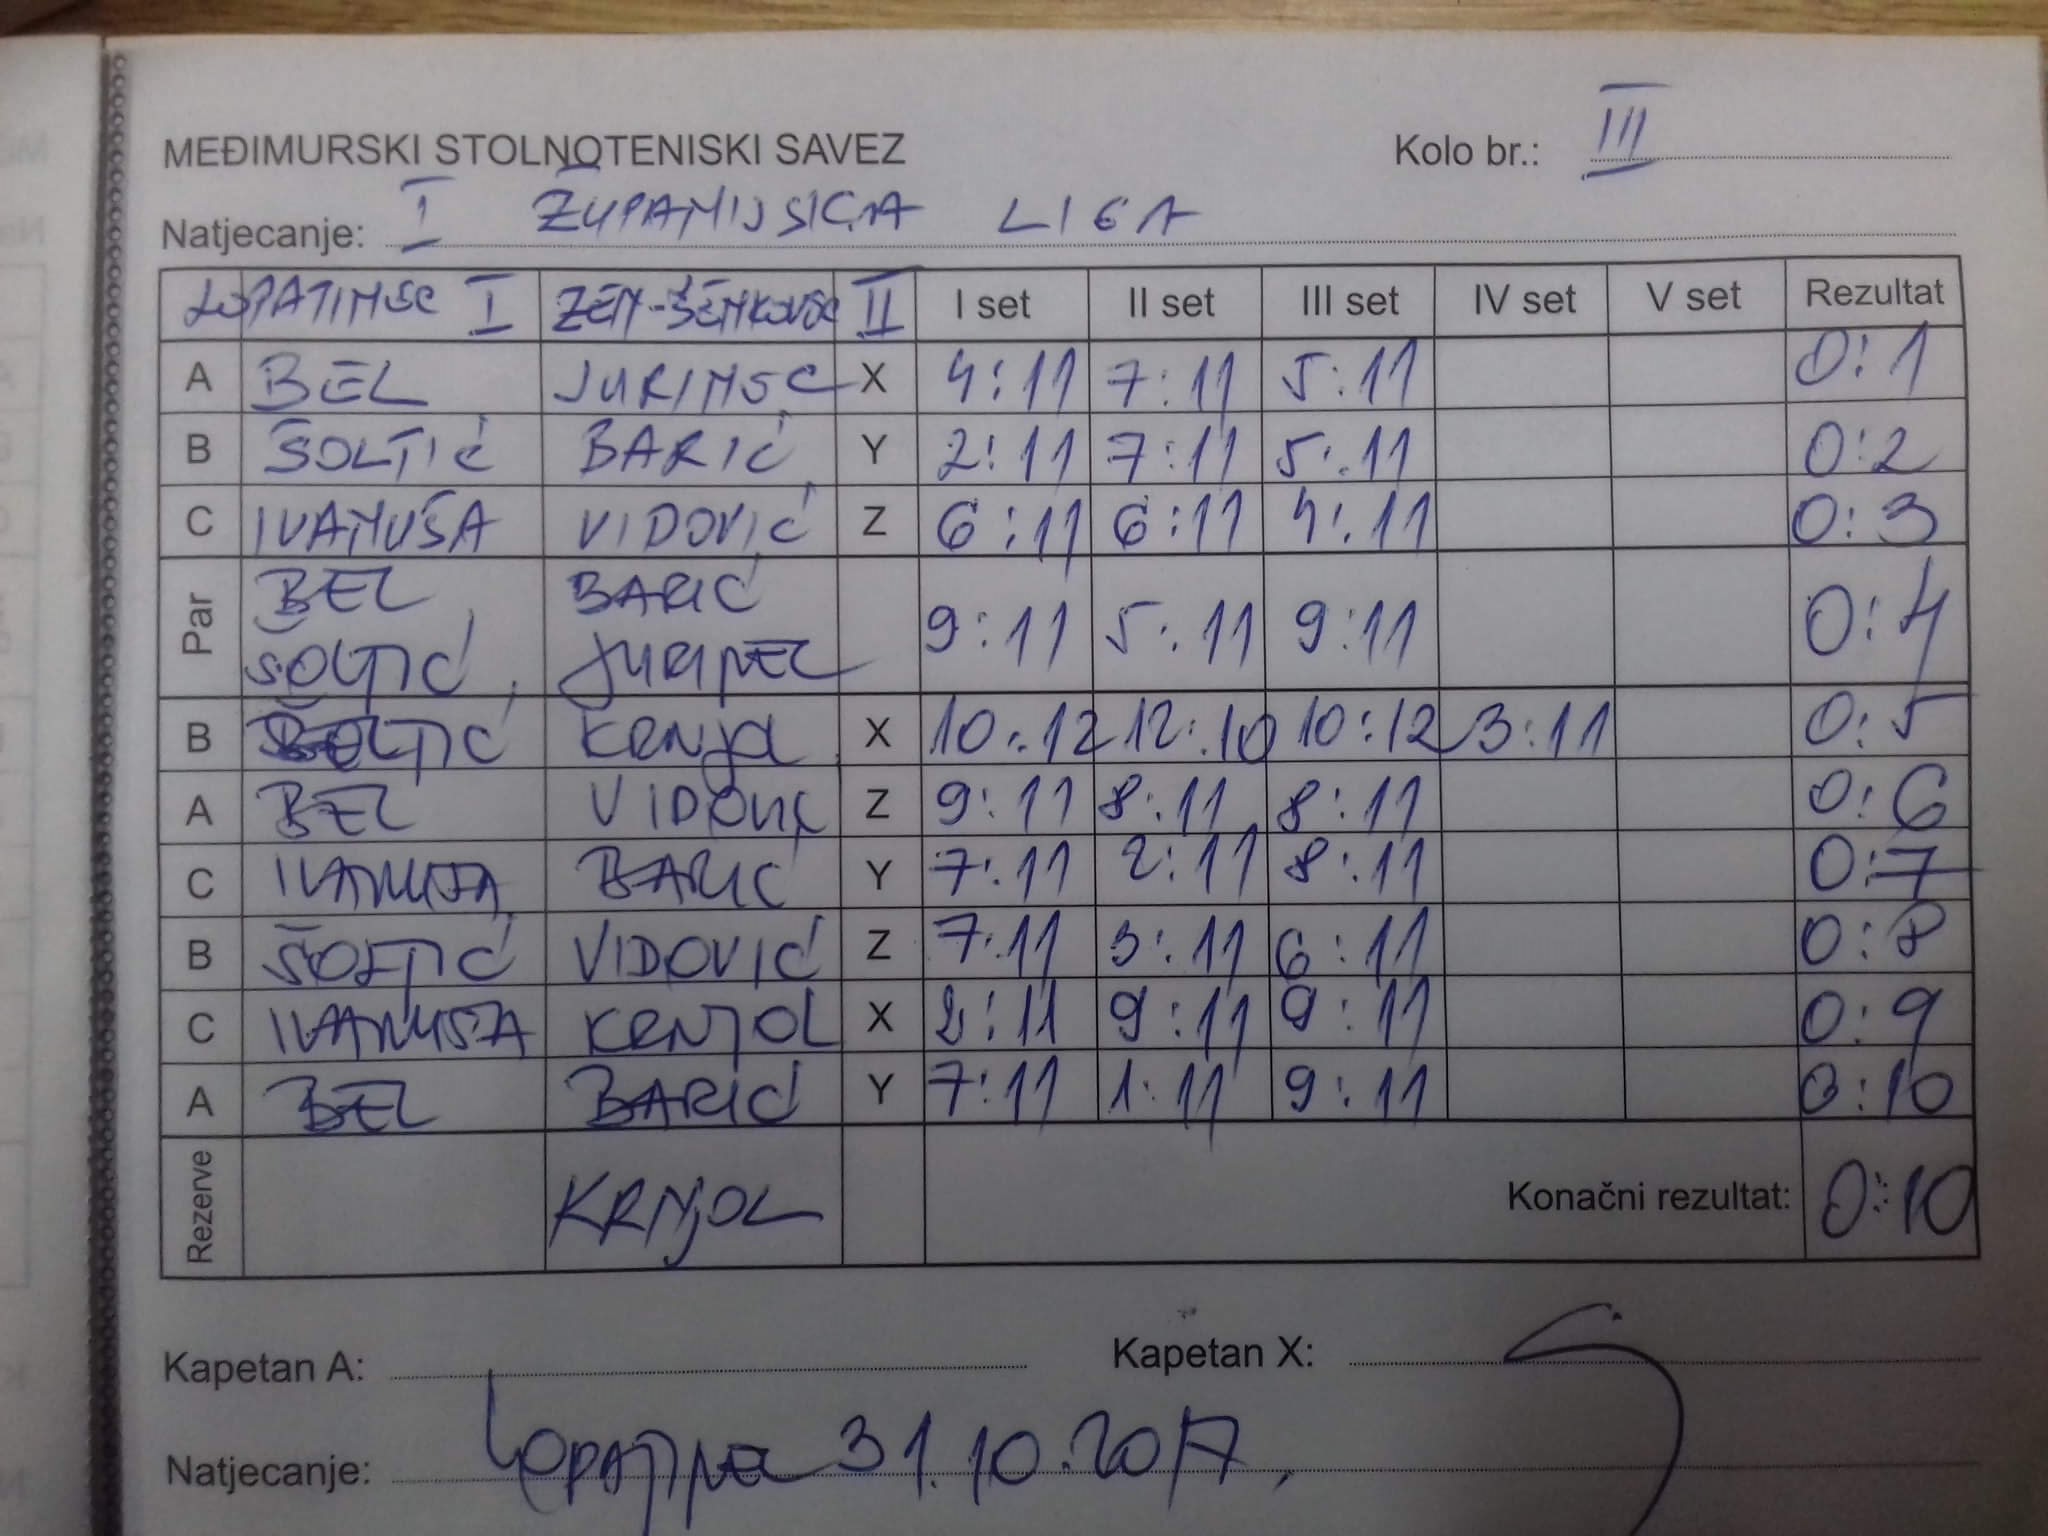 MEĐIMURSKI STOLNOTENISKI SAVEZ Kolo br.: III
Natjecanje: I ŽUPANIJSKA LIGA
LOPATINEC I ZEM-ŠENKOVEC II I set II set III set IV set V set Rezultat
A BEL JURINEC X 4:11 7:11 5:11 0:1
B ŠOLTIĆ BARIĆ Y 2:11 7:11 5:11 0:2
C IVANUŠA VIDOVIĆ Z 6:11 6:11 4:11 0:3
Par BEL BARIĆ 9:11 5:11 9:11 0:4
ŠOLTIĆ, JURINEC
B ŠOLTIĆ KRNJOL X 10:12 12:10 10:12 3:11 0:5
A BEL VIDOVIĆ Z 9:11 8:11 8:11 0:6
C IVANUŠA BARIĆ Y 7:11 2:11 8:11 0:7
B ŠOLTIĆ VIDOVIĆ Z 7:11 3:11 6:11 0:8
C IVANUŠA KRNJOL X 2:11 9:11 9:11 0:9
A BEL BARIĆ Y 7:11 1:11 9:11 0:10
Rezerve KRNJOL Konačni rezultat: 0:10
Kapetan A: Kapetan X:
Natjecanje: Lopatinec 31.10.2017.